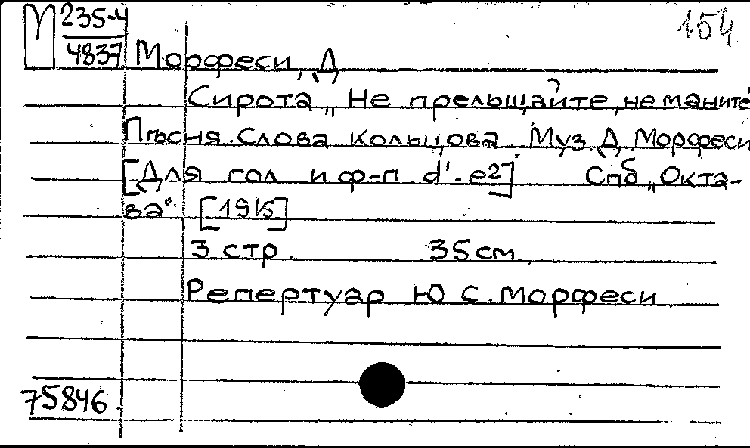 М 235-4
4837
154
Морфеси, Д
Сирота „Не прельщайте, не маните"
Пѣсня. Слова Кольцова. Муз. Д. Морфеси
[Для гол и ф-п d¹-e²] Спб „Окта-
ва". [1915]
3 стр. 35 см.
Репертуар Ю. С. Морфеси
75846